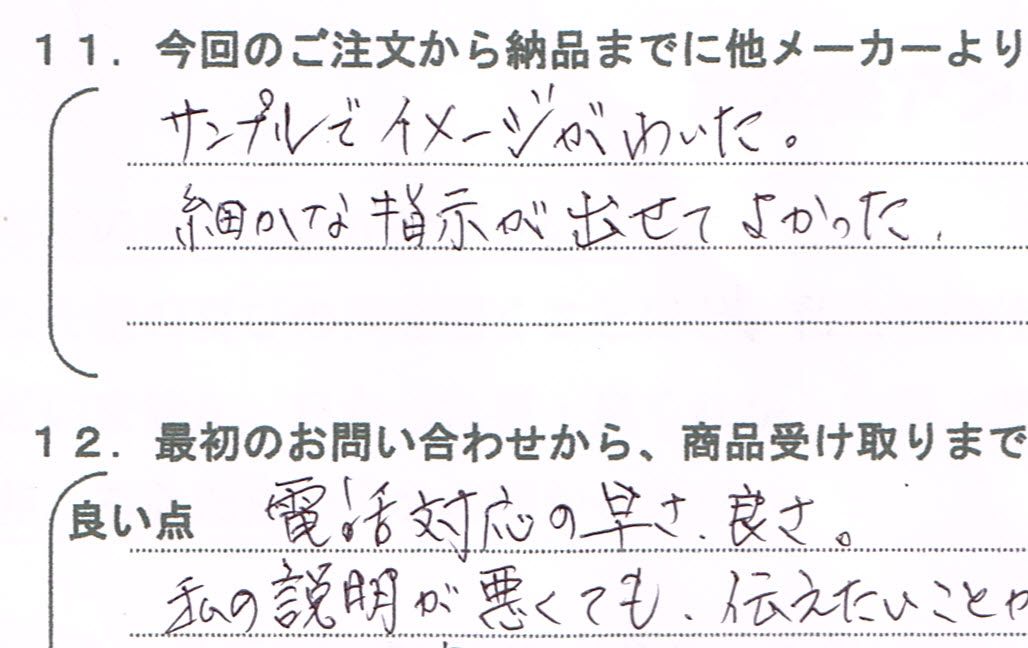 １１．今回のご注文から納品までに他メーカーより
サンプルでイメージがわいた。
細かな指示が出せてよかった、
１２．最初のお問い合わせから、商品受け取りまで
良い点 電話対応の早さ、良さ。
私の説明が悪くても、伝えたいこと